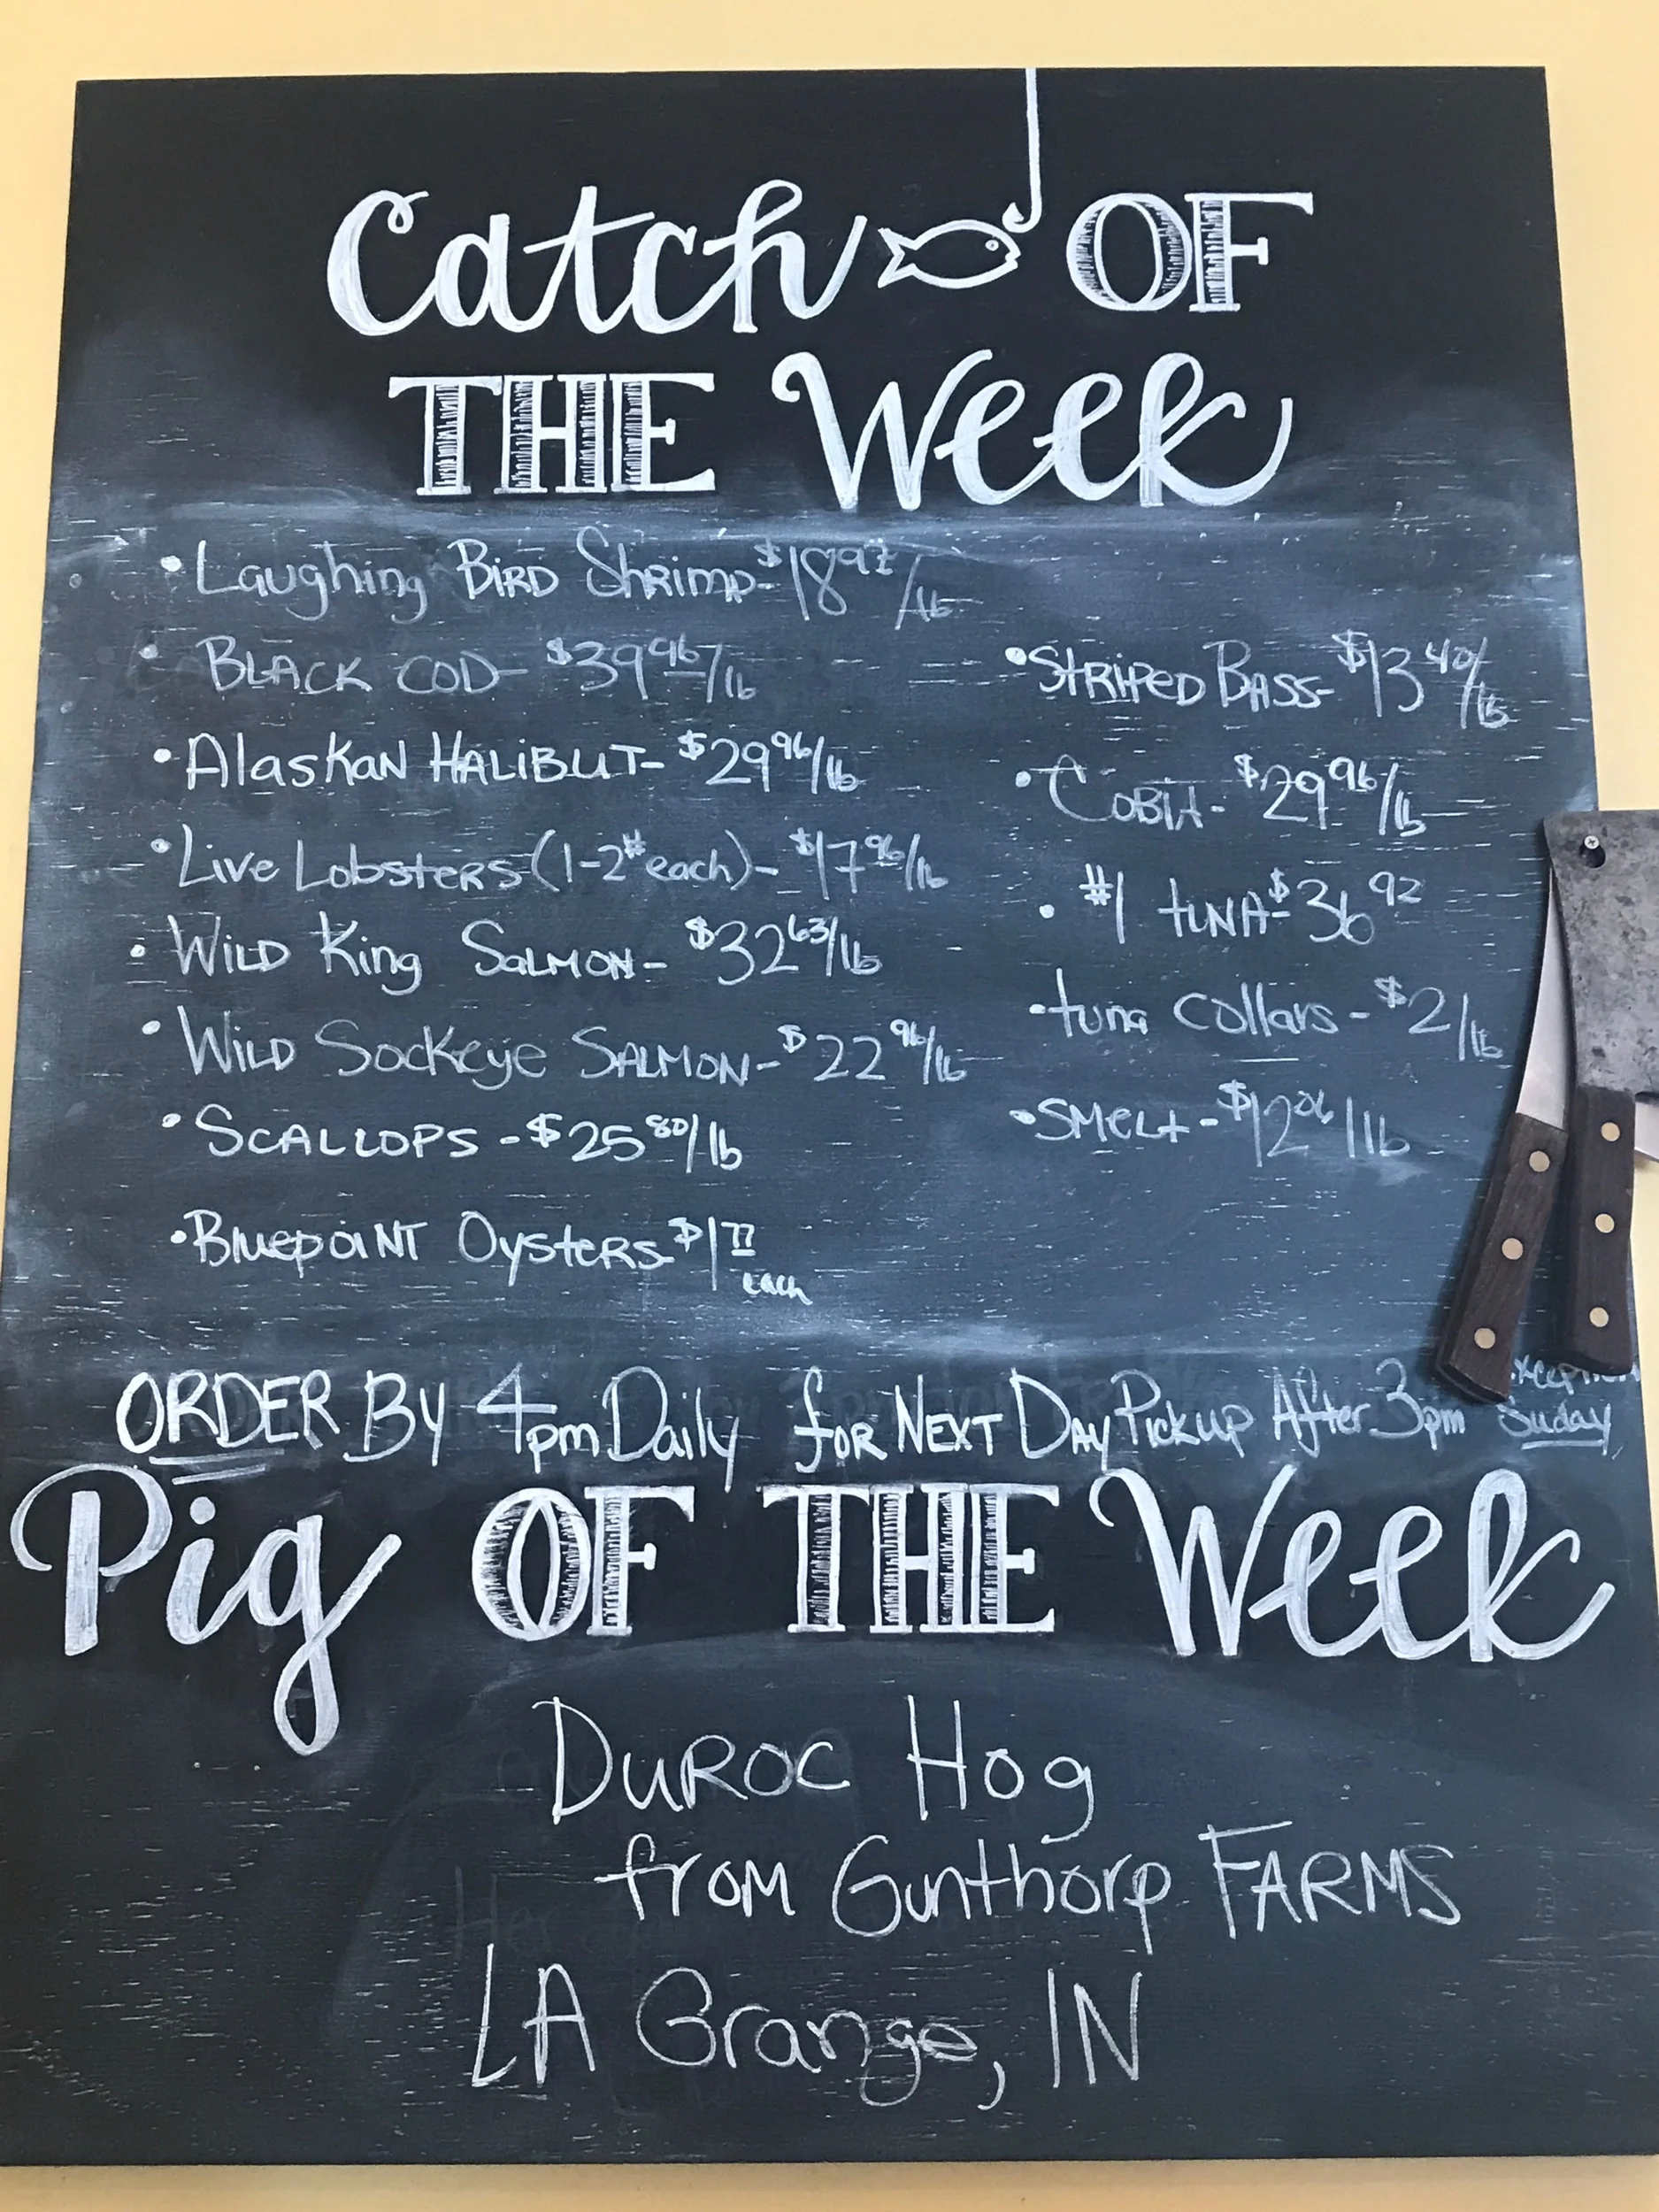 Catch OF
THE Week
• Laughing Bird Shrimp- $18.97/lb
• Black Cod- $39.96/lb
• Alaskan Halibut- $29.96/lb
• Live Lobsters (1-2# each)- $17.96/lb
• Wild King Salmon- $32.63/lb
• Wild Sockeye Salmon- $22.96/lb
• Scallops - $25.80/lb
• Bluepoint Oysters- $1.77 each
• Striped Bass- $13.40/lb
• Cobia- $29.96/lb
• #1 tuna- $36.92
• tuna collars - $2/lb
• Smelt- $12.06/lb
ORDER By 4pm Daily for Next Day Pickup After 3pm Suday
Pig OF THE Week
Duroc Hog
from Gunthorp FARMS
LA Grange, IN